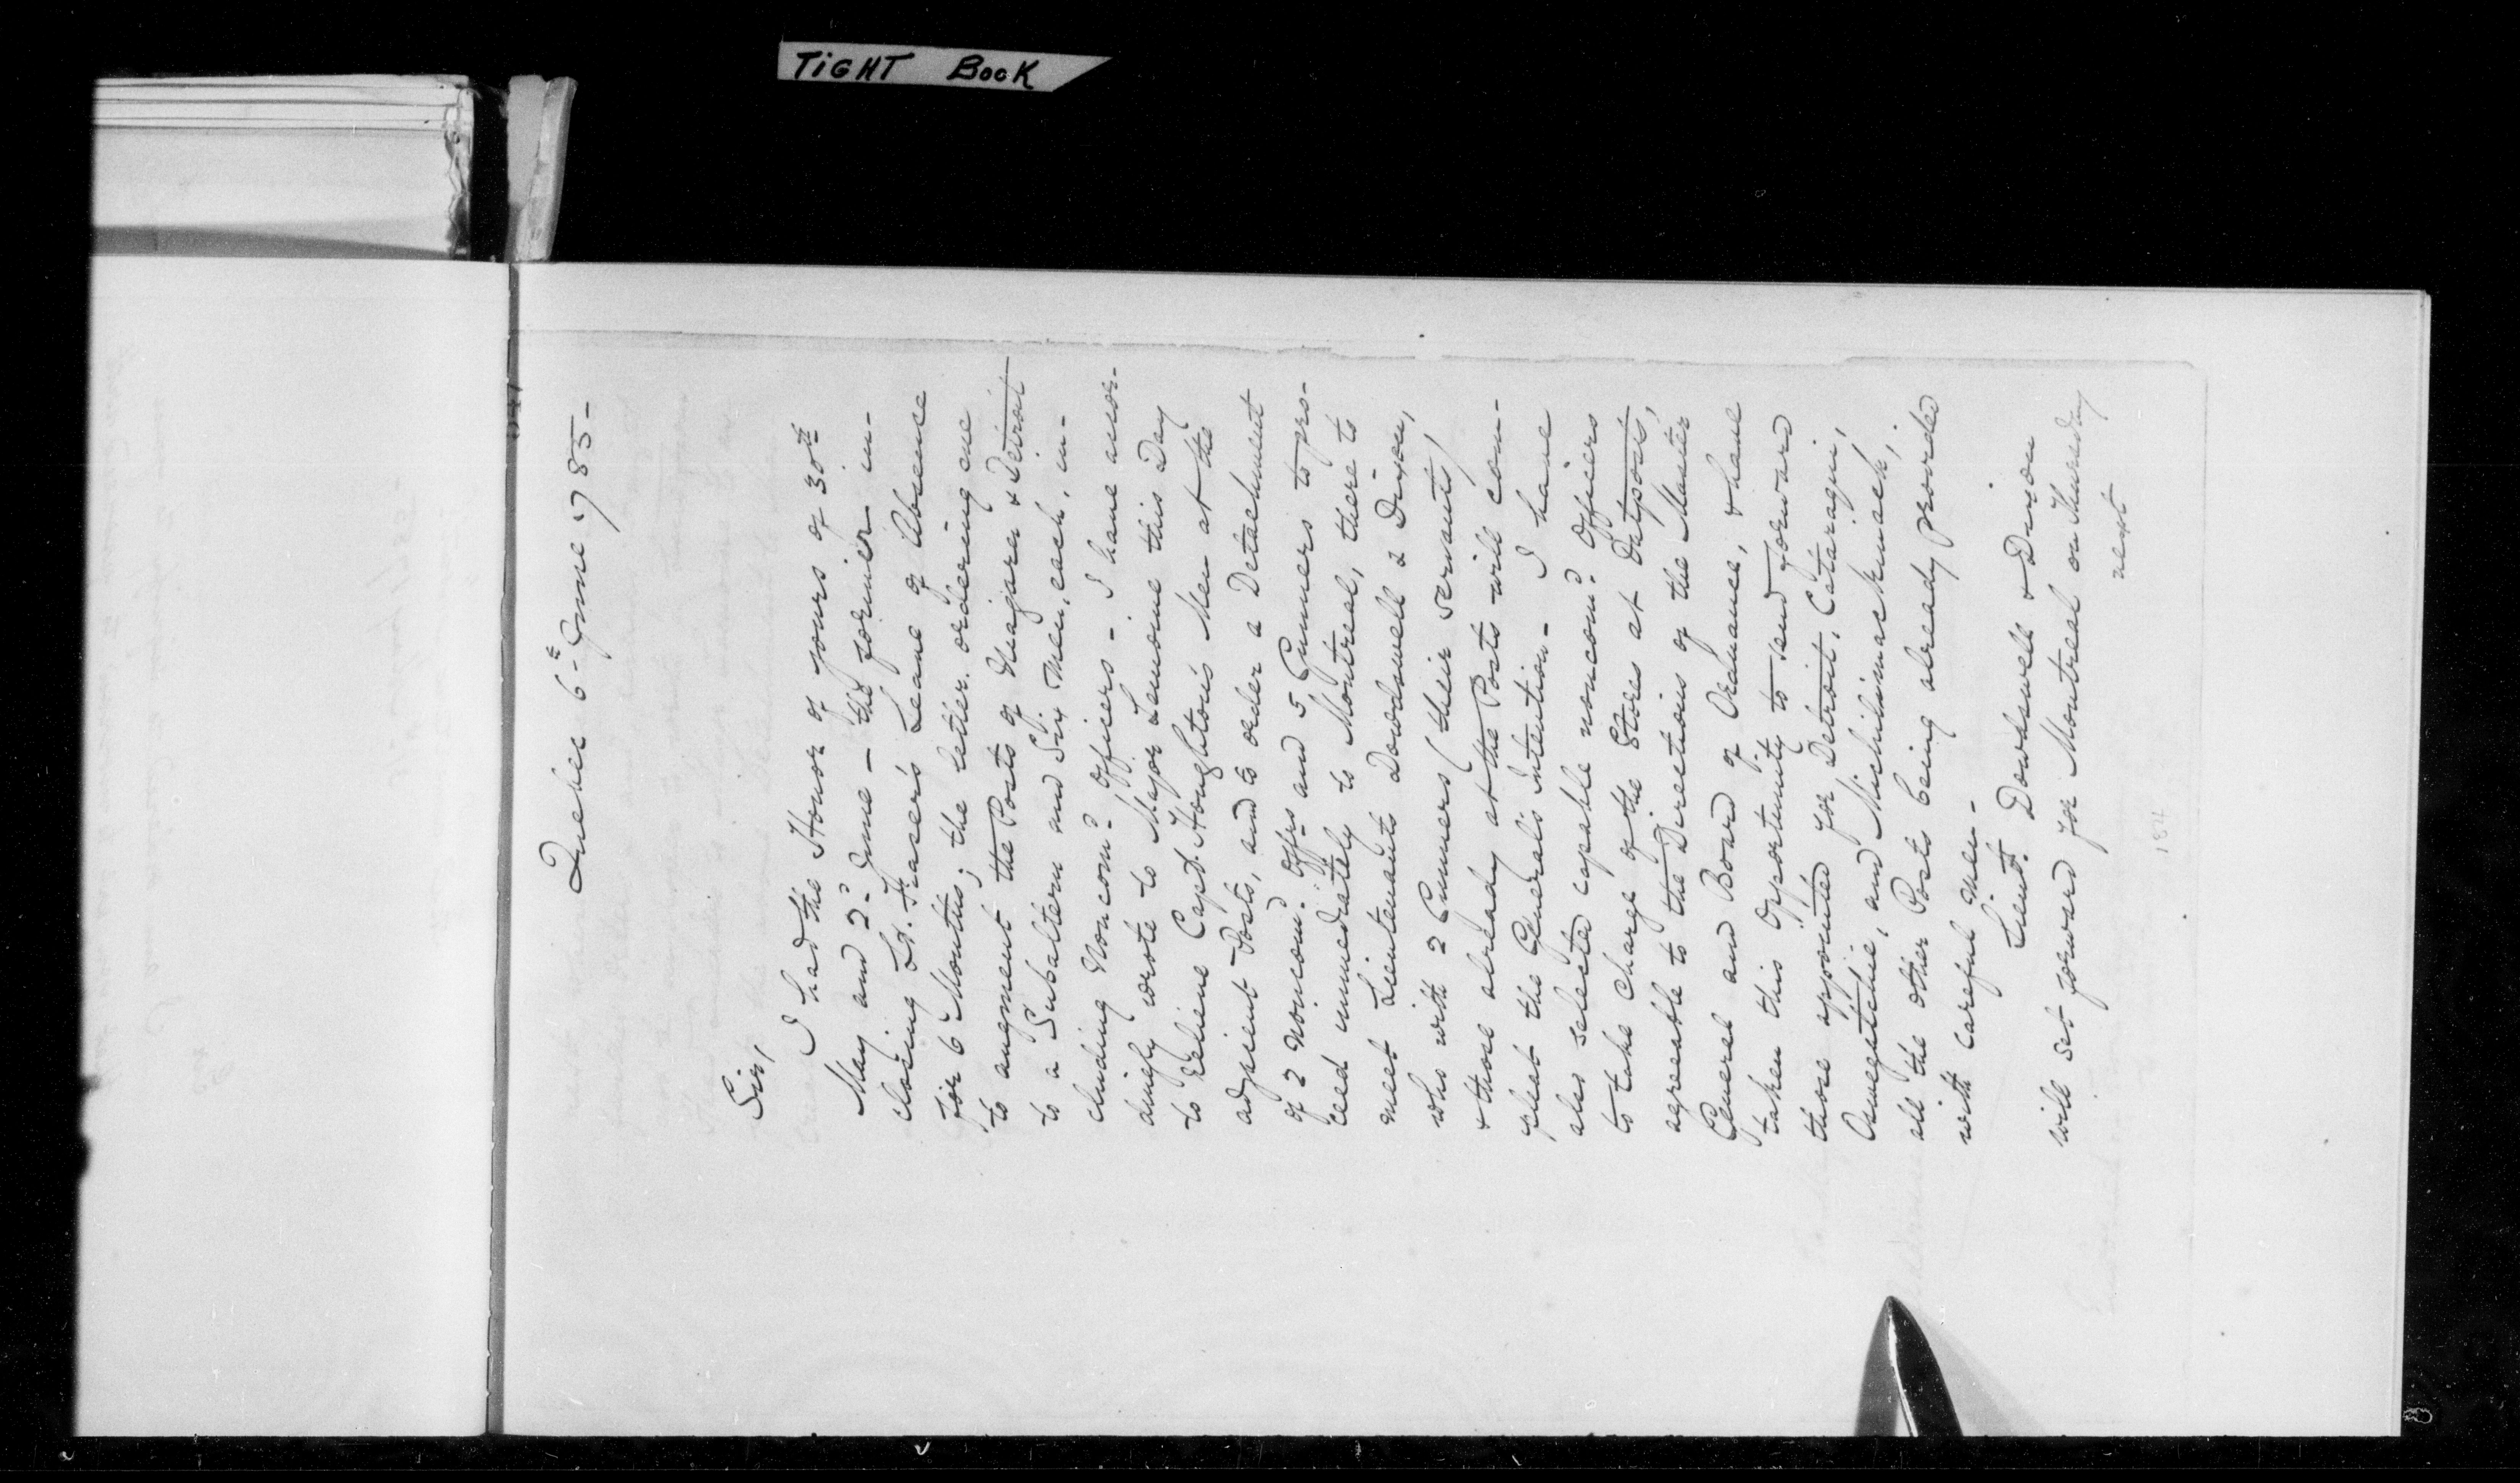 TIGHT BOOK
Quebec 6th June 1785-
Sir,
I had the Honor of yours of 30th
May and 2d June - the former in-
closing Lt. Fraser's Leave of Absence
for 6 Months; the latter ordering me
to augment the Posts of Niagara & Detroit
to a Subaltern and Six Men, each, in-
cluding Noncomd Officers - I have accor-
dingly wrote to Major Lemoine this Day
to relieve Capt. Houghton's Men at the
adjacent Posts, and to order a Detachment
of 2 Noncomd Offrs and 5 Gunners to pro-
ceed immediately to Montreal, there to
meet Lieutenants Dowdswell & Dixon,
who with 2 Gunners (their servants)
& those already at the Posts will com-
pleat the General's Intention - I have
also selected capable noncomd Officers
to take Charge of the Stores at Outposts,
agreeable to the Directions of the Master
General and Board of Ordnance, & have
taken this Opportunity to send forward
those appointed for Detroit, Cataraqui,
Oswegatchie, and Michilimackinack;
all the other Posts being already provided
with careful Men -
Lieut. Dowdswell & Dixon
will set forward for Montreal on Thursday
next
184